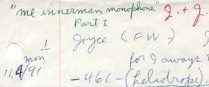 "me innerman monophone" J. & J.
Part I
1 Joyce (FW)
mon for I always
11/4/91 - 461 - (heliotrope)